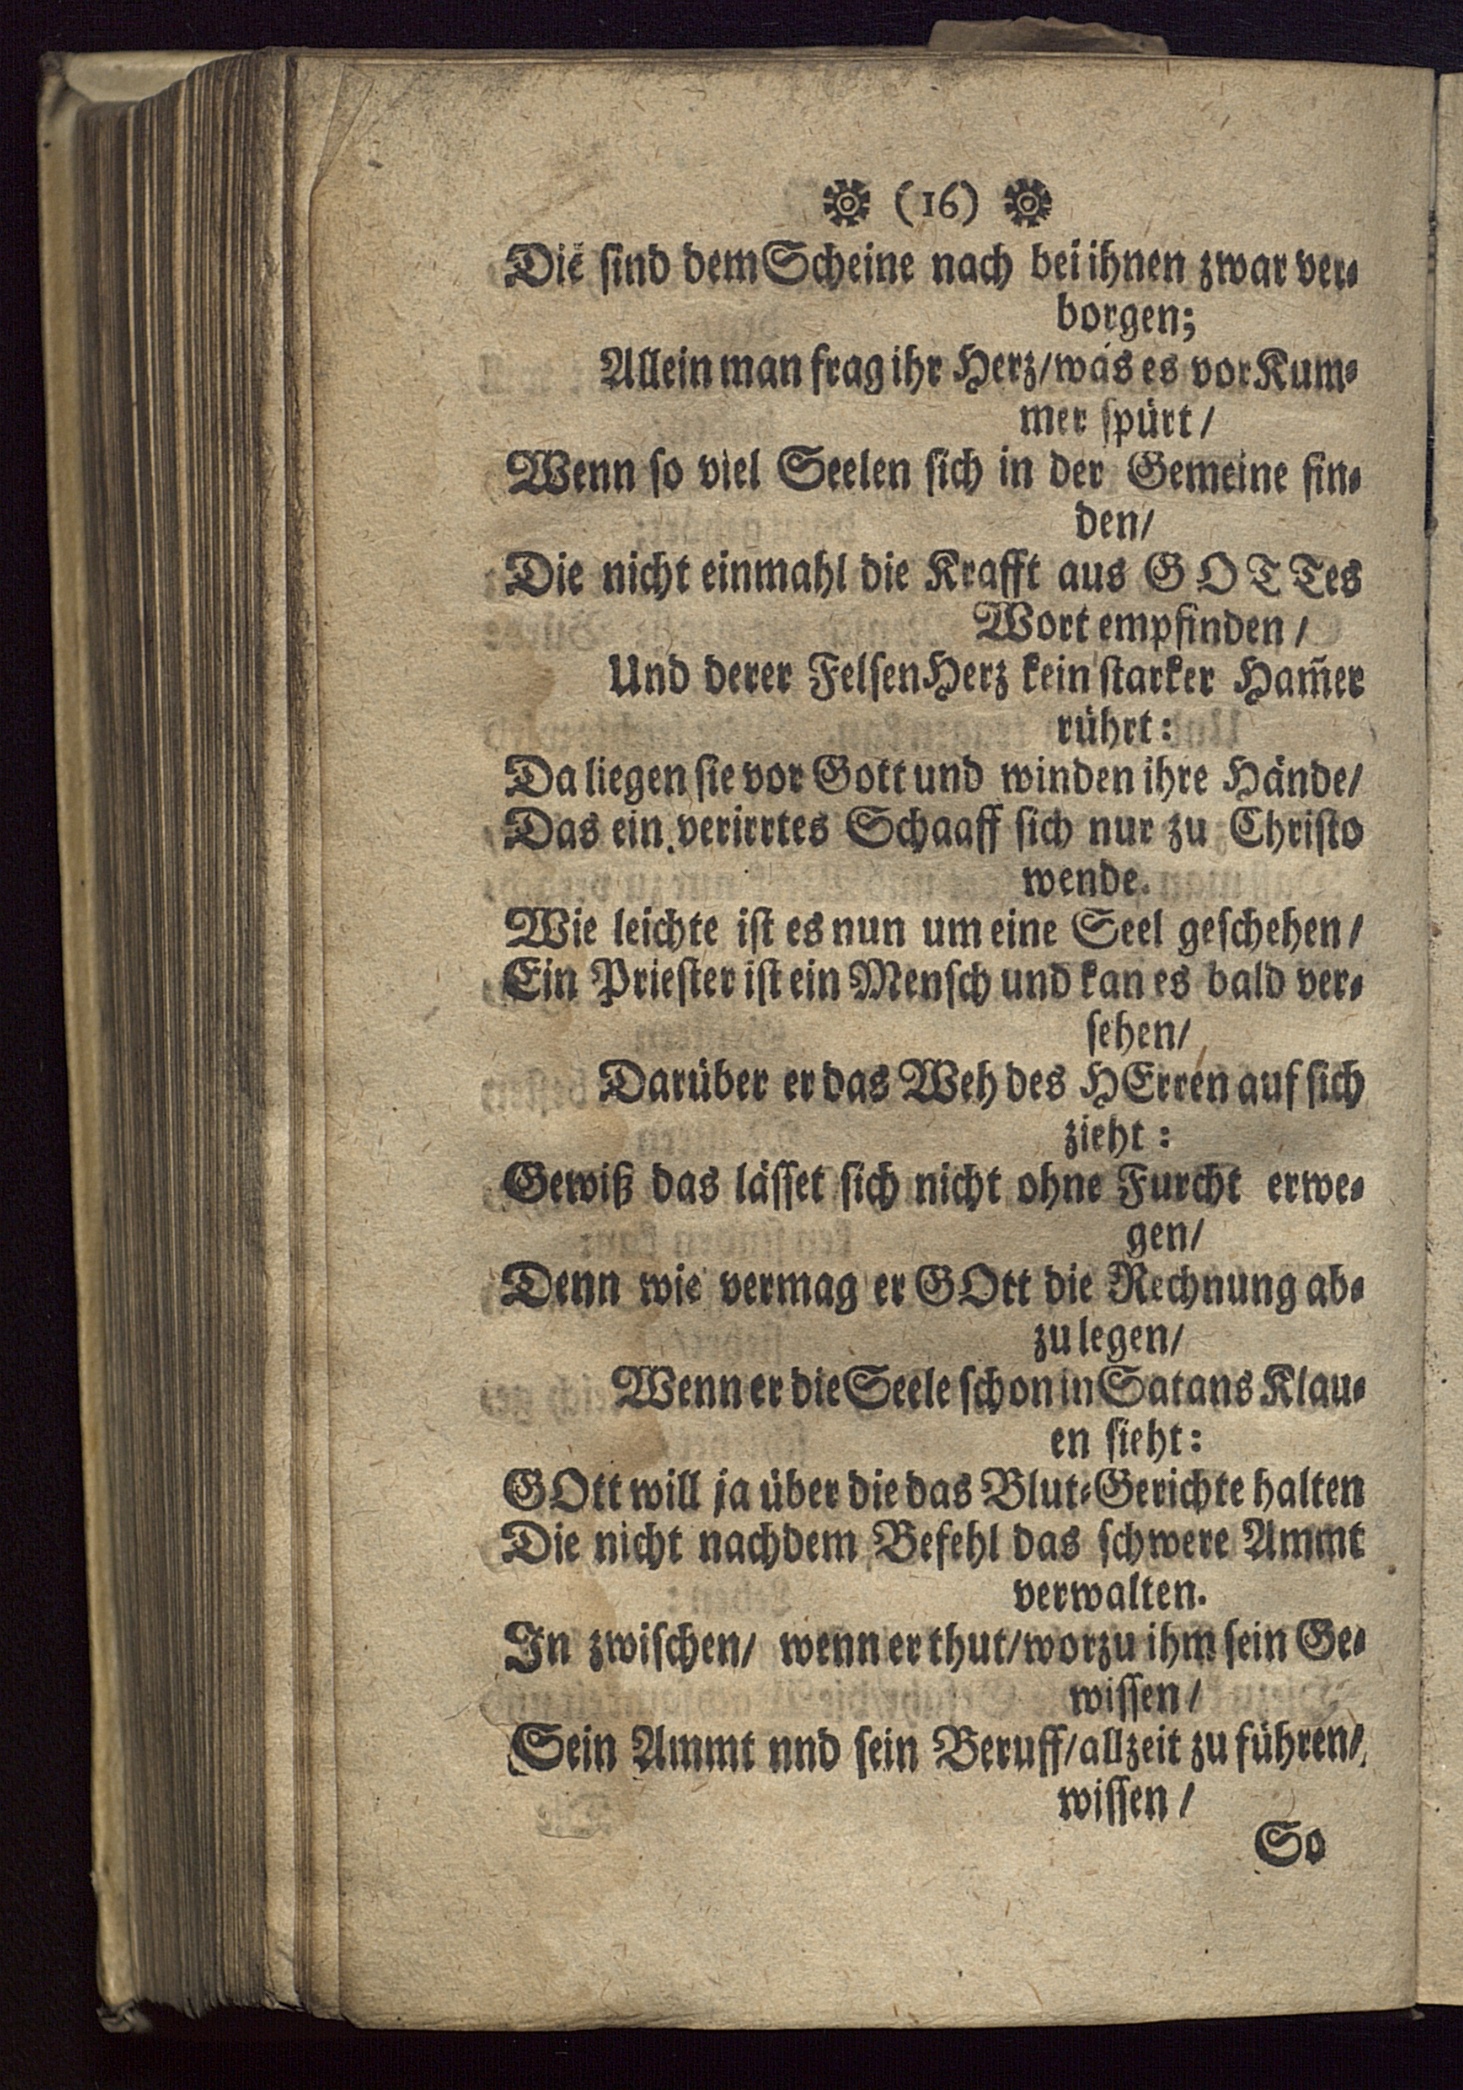 (16)
Die sind dem Scheine nach bei ihnen zwar ver-
borgen;
Allein man frag ihr Herz/was es vor Kum-
mer spürt/
Wenn so viel Seelen sich in der Gemeine fin-
den/
Die nicht einmahl die Krafft aus GOTTes
Wort empfinden/
Und derer FelsenHerz kein starker Ham̃er
rührt:
Da liegen sie vor Gott und winden ihre Hände/
Das ein verirrtes Schaaff sich nur zu Christo
wende.
Wie leichte ist es nun um eine Seel geschehen/
Ein Priester ist ein Mensch und kan es bald ver-
sehen/
Darüber er das Weh des HErren auf sich
zieht:
Gewiß das lässet sich nicht ohne Furcht erwe-
gen/
Denn wie vermag er GOtt die Rechnung ab-
zulegen/
Wenn er die Seele schon in Satans Klau-
en sieht:
GOtt will ja über die das Blut-Gerichte halten
Die nicht nachdem Befehl das schwere Ammt
verwalten.
In zwischen/ wenn er thut/worzu ihm sein Ge-
wissen/
Sein Ammt nnd sein Beruff/allzeit zu führen/
wissen/
So